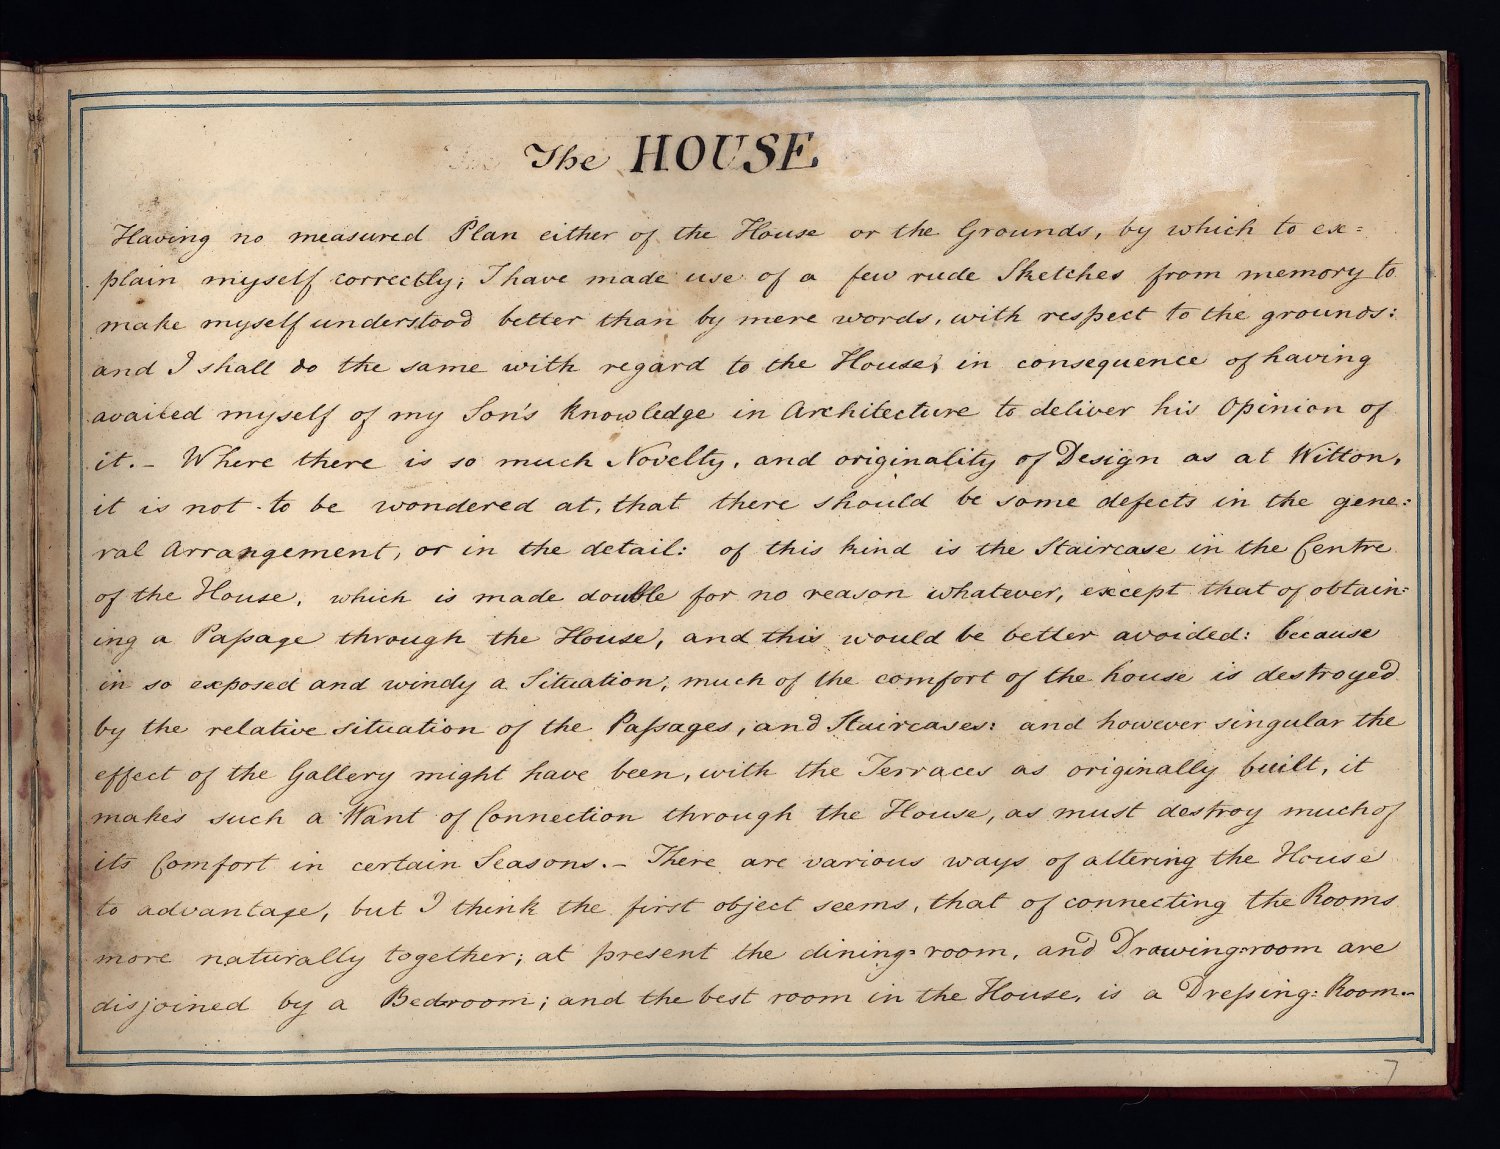 The HOUSE
Having no measured Plan either of the House or the Grounds, by which to ex=
plain myself correctly; I have made use of a few rude Sketches from memory to
make myself understood better than by mere words, with respect to the grounds:
and I shall do the same with regard to the House; in consequence of having
availed myself of my Son's Knowledge in Architecture to deliver his Opinion of
it.– Where there is so much Novelty, and originality of Design as at Witton,
it is not to be wondered at, that there should be some defects in the gene:
ral Arrangement, or in the detail: of this kind is the Staircase in the Centre
of the House, which is made double for no reason whatever, except that of obtain:
ing a Paſsage through the House, and this would be better avoided: because
in so exposed and windy a Situation, much of the comfort of the house is destroyed
by the relative situation of the Paſsages, and Staircases: and however singular the
effect of the Gallery might have been, with the Terraces as originally built, it
makes such a Want of Connection through the House, as must destroy much of
its Comfort in certain Seasons.– There are various ways of altering the House
to advantage, but I think the first object seems, that of connecting the Rooms
more naturally together; at present the dining=room, and Drawing=room are
disjoined by a Bedroom; and the best room in the House, is a Dreſsing: Room.–
7